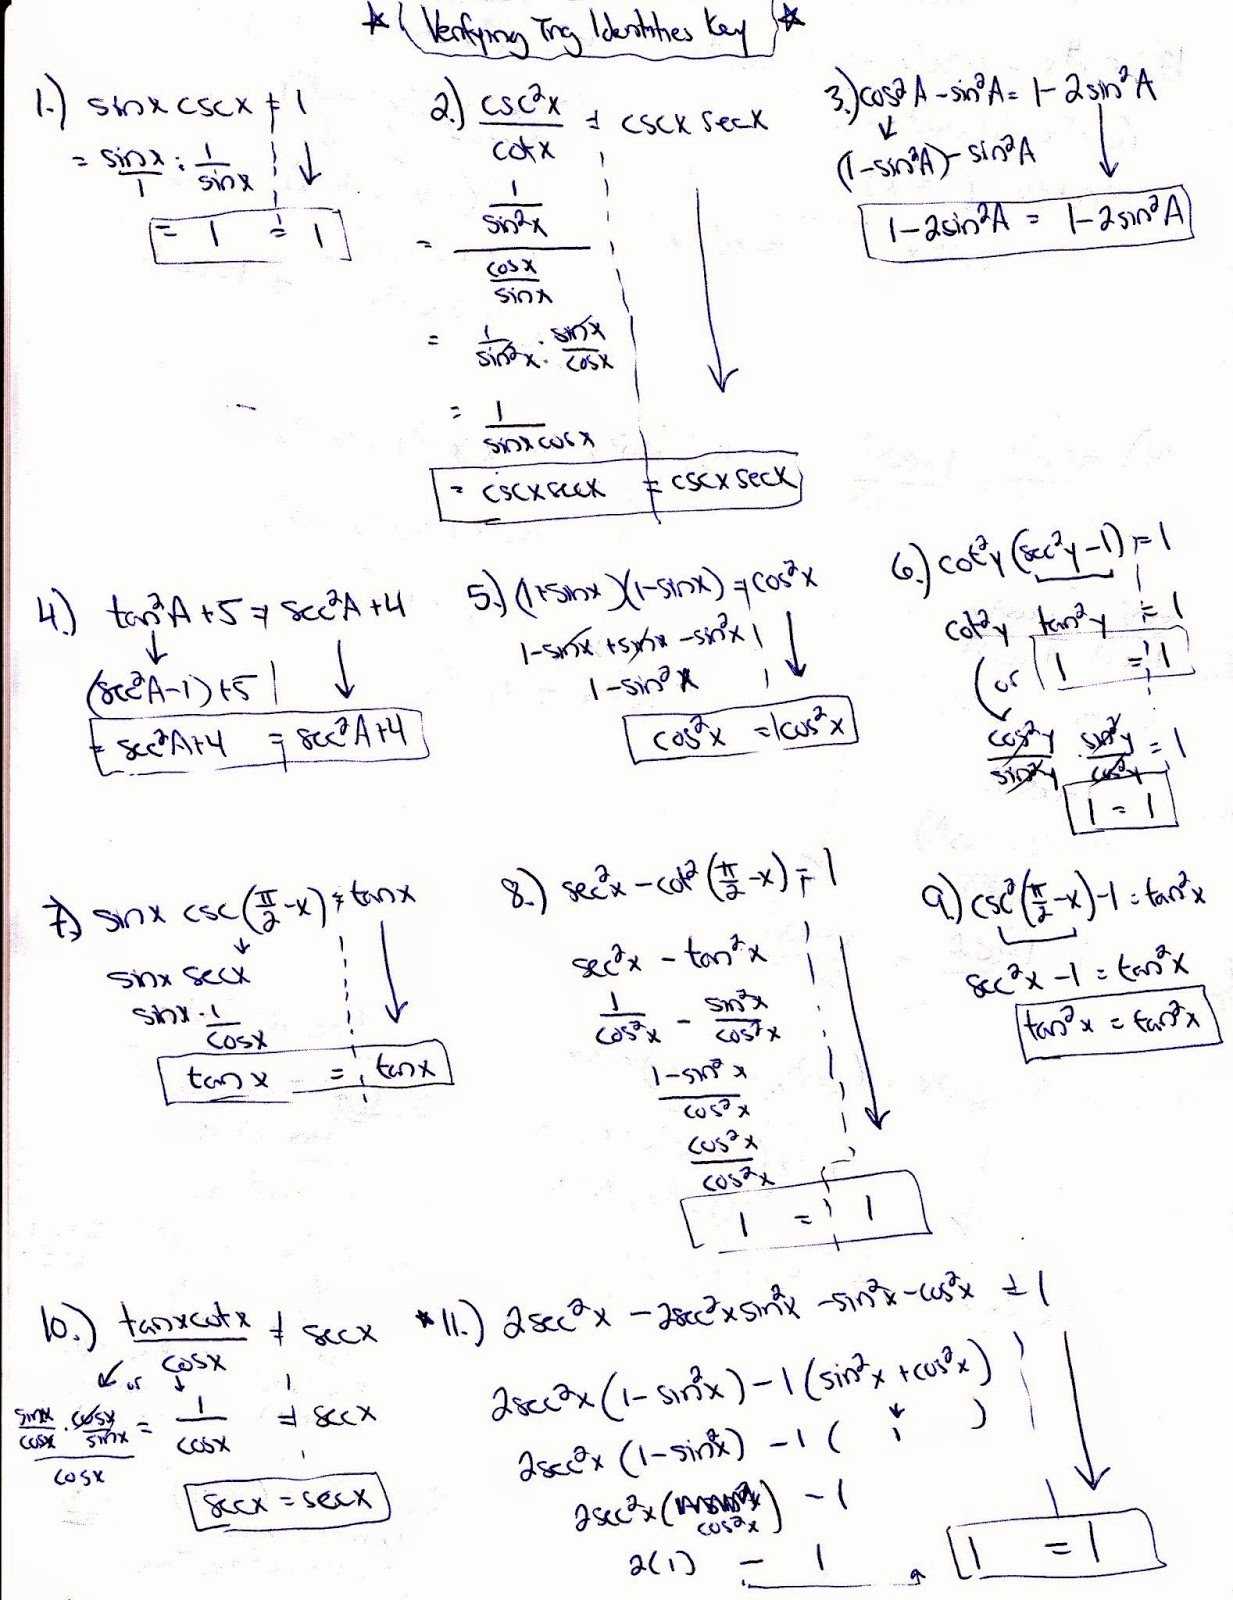 ★ Verifying Trig Identities Key ★
1.) sinx cscx = 1
= sinx/1 · 1/sinx
= 1 = 1
2.) csc²x/cotx = cscx secx
= (1/sin²x)/(cosx/sinx)
= 1/sin²x · sinx/cosx
= 1/sinxcosx
= cscxsecx = cscx secx
3.) cos²A - sin²A = 1-2sin²A
(1-sin²A) - sin²A
1-2sin²A = 1-2sin²A
4.) tan²A+5 = sec²A+4
(sec²A-1)+5
= sec²A+4 = sec²A+4
5.) (1+sinx)(1-sinx) = cos²x
1-sinx+sinx-sin²x
1-sin²x
cos²x = cos²x
6.) cot²y(sec²y-1) = 1
cot²y tan²y = 1
(or 1 = 1
cos²y/sin²y · sin²y/cos²y = 1
1 = 1
7.) sinx csc(π/2-x) = tanx
sinx secx
sinx · 1/cosx
tanx = tanx
8.) sec²x - cot²(π/2-x) = 1
sec²x - tan²x
1/cos²x - sin²x/cos²x
1-sin²x/cos²x
cos²x/cos²x
1 = 1
9.) csc²(π/2-x)-1 = tan²x
sec²x-1 = tan²x
tan²x = tan²x
10.) tanxcotx/cosx = secx
or
(sinx/cosx · cosx/sinx)/cosx = 1/cosx = secx
secx = secx
*11.) 2sec²x - 2sec²xsin²x - sin²x - cos²x = 1
2sec²x(1-sin²x) - 1(sin²x+cos²x)
2sec²x(1-sin²x) - 1( 1 )
2sec²x(cos²x) - 1
2(1) - 1 1 = 1